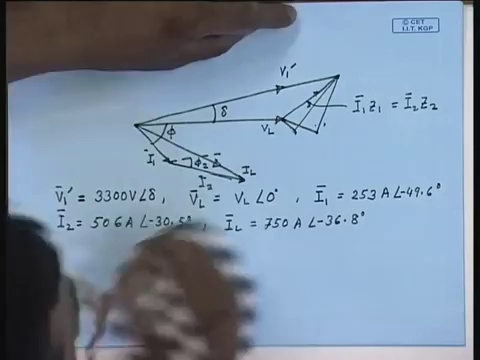 © CET
I.I.T. KGP
V̄₁′
δ
V_L
Ī₁Z₁ = Ī₂Z₂
φ
Ī₁
φ₂
Ī₂
I_L
V̄₁′ = 3300V∠δ, V̄_L = V_L∠0°, Ī₁ = 253A∠-49.6°
Ī₂ = 506A∠-30.5°, Ī_L = 750A∠-36.8°